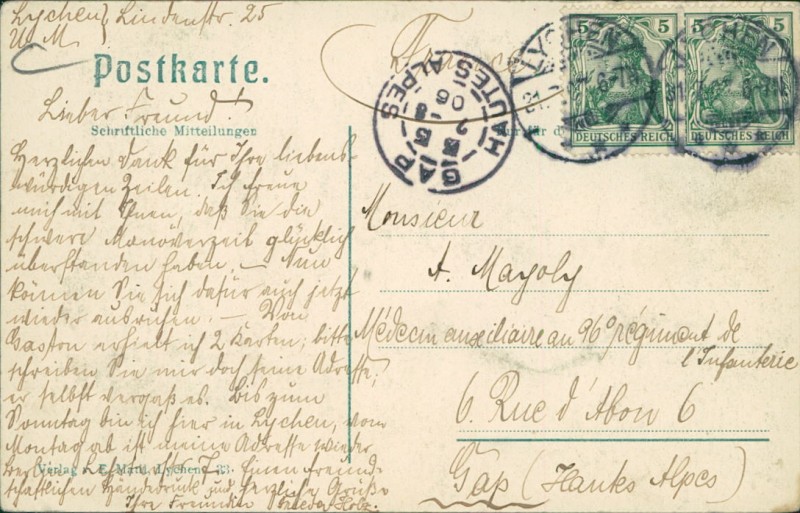 Lychen, Lindenstr. 25
U. M.
Postkarte.
France
Lieber Freund!
Schriftliche Mitteilungen
Herzlichen Dank für Ihre liebens-
würdigen Zeilen. Ich freue
mich mit Ihnen, daß Sie die
schwere Manöverzeit glücklich
überstanden haben. — Nun
können Sie sich dafür auch jetzt
wieder ausruhen. — Von
Gaston erhielt ich 2 Karten; bitte
schreiben Sie mir doch seine Adresse,
er selbst vergaß es. Bis zum
Sonntag bin ich hier in Lychen, vom
Montag ab ist meine Adresse wieder
Einen freund-
schaftlichen Händedruck und herzliche Grüße
Ihre Freundin
Verlag v. E. Lychen 33.
LYCHEN
LYCHEN
5 5
DEUTSCHES REICH
5 5
DEUTSCHES REICH
GAP
HAUTES ALPES
06
Monsieur
A. Mayoly
Médecin auxiliaire au 96e régiment de
l'Infanterie
6. Rue d'Abon 6
Gap (Hautes Alpes)